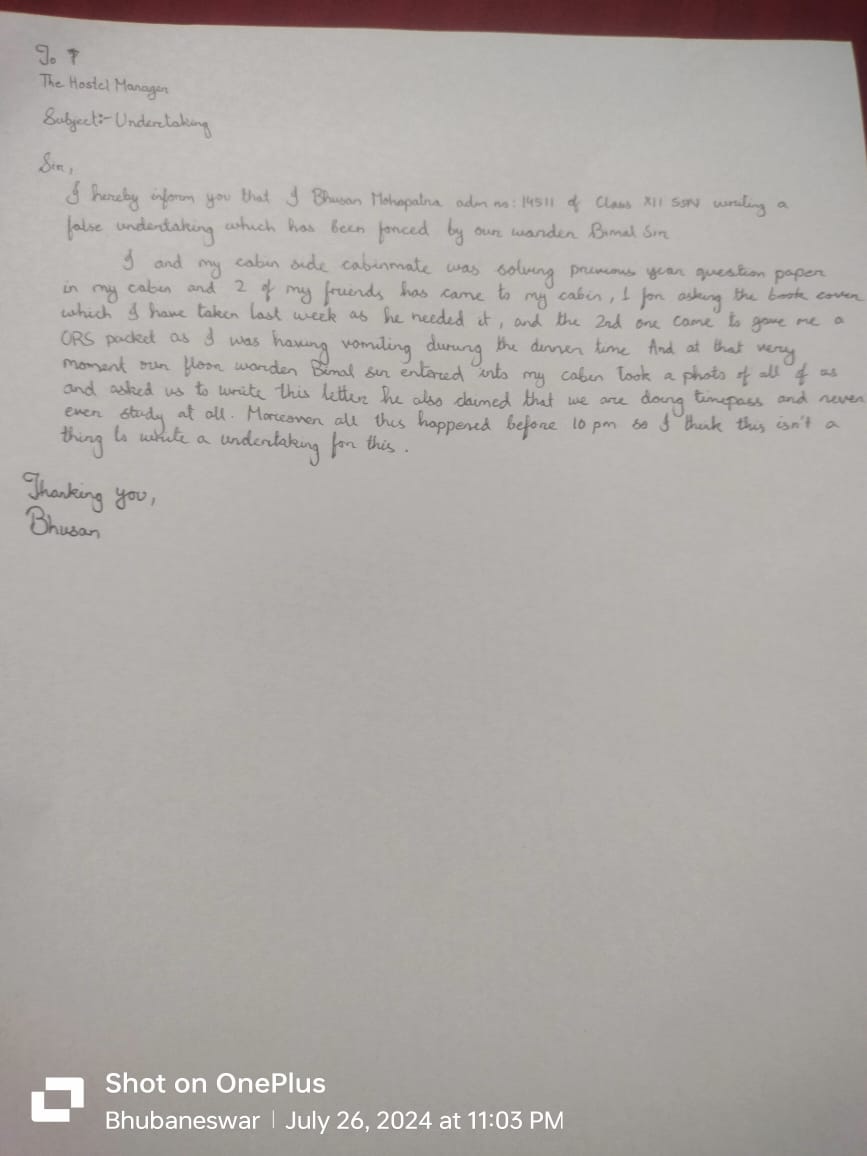 To
The Hostel Manager
Subject:- Undertaking
Sir,
I hereby inform you that I Bhusan Mohapatra adm no: 14511 of Class XII SSN writing a
false undertaking which has been forced by our warden Bimal Sir
I and my cabin side cabinmate was solving previous year question paper
in my cabin and 2 of my friends has came to my cabin, 1 for asking the book cover
which I have taken last week as he needed it, and the 2nd one came to gave me a
ORS packet as I was having vomiting during the dinner time And at that very
moment our floor warden Bimal sir entered into my cabin took a photo of all of us
and asked us to write this letter he also claimed that we are doing timepass and never
even study at all. Moreover all this happened before 10 pm so I think this isn't a
thing to write a undertaking for this.
Thanking you,
Bhusan
Shot on OnePlus
Bhubaneswar | July 26, 2024 at 11:03 PM